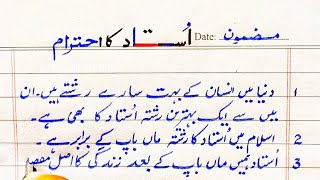 مضمون Date: اُستاد کا احترام
1 دنیا میں انسان کے بہت سارے رشتے ہیں۔ ان
میں سے ایک بہترین رشتہ اُستاد کا بھی ہے۔
2 اسلام میں اُستاد کا رشتہ ماں باپ کے برابر ہے۔
3 اُستاد ہمیں ماں باپ کے بعد زندگی کا اصل مقصد